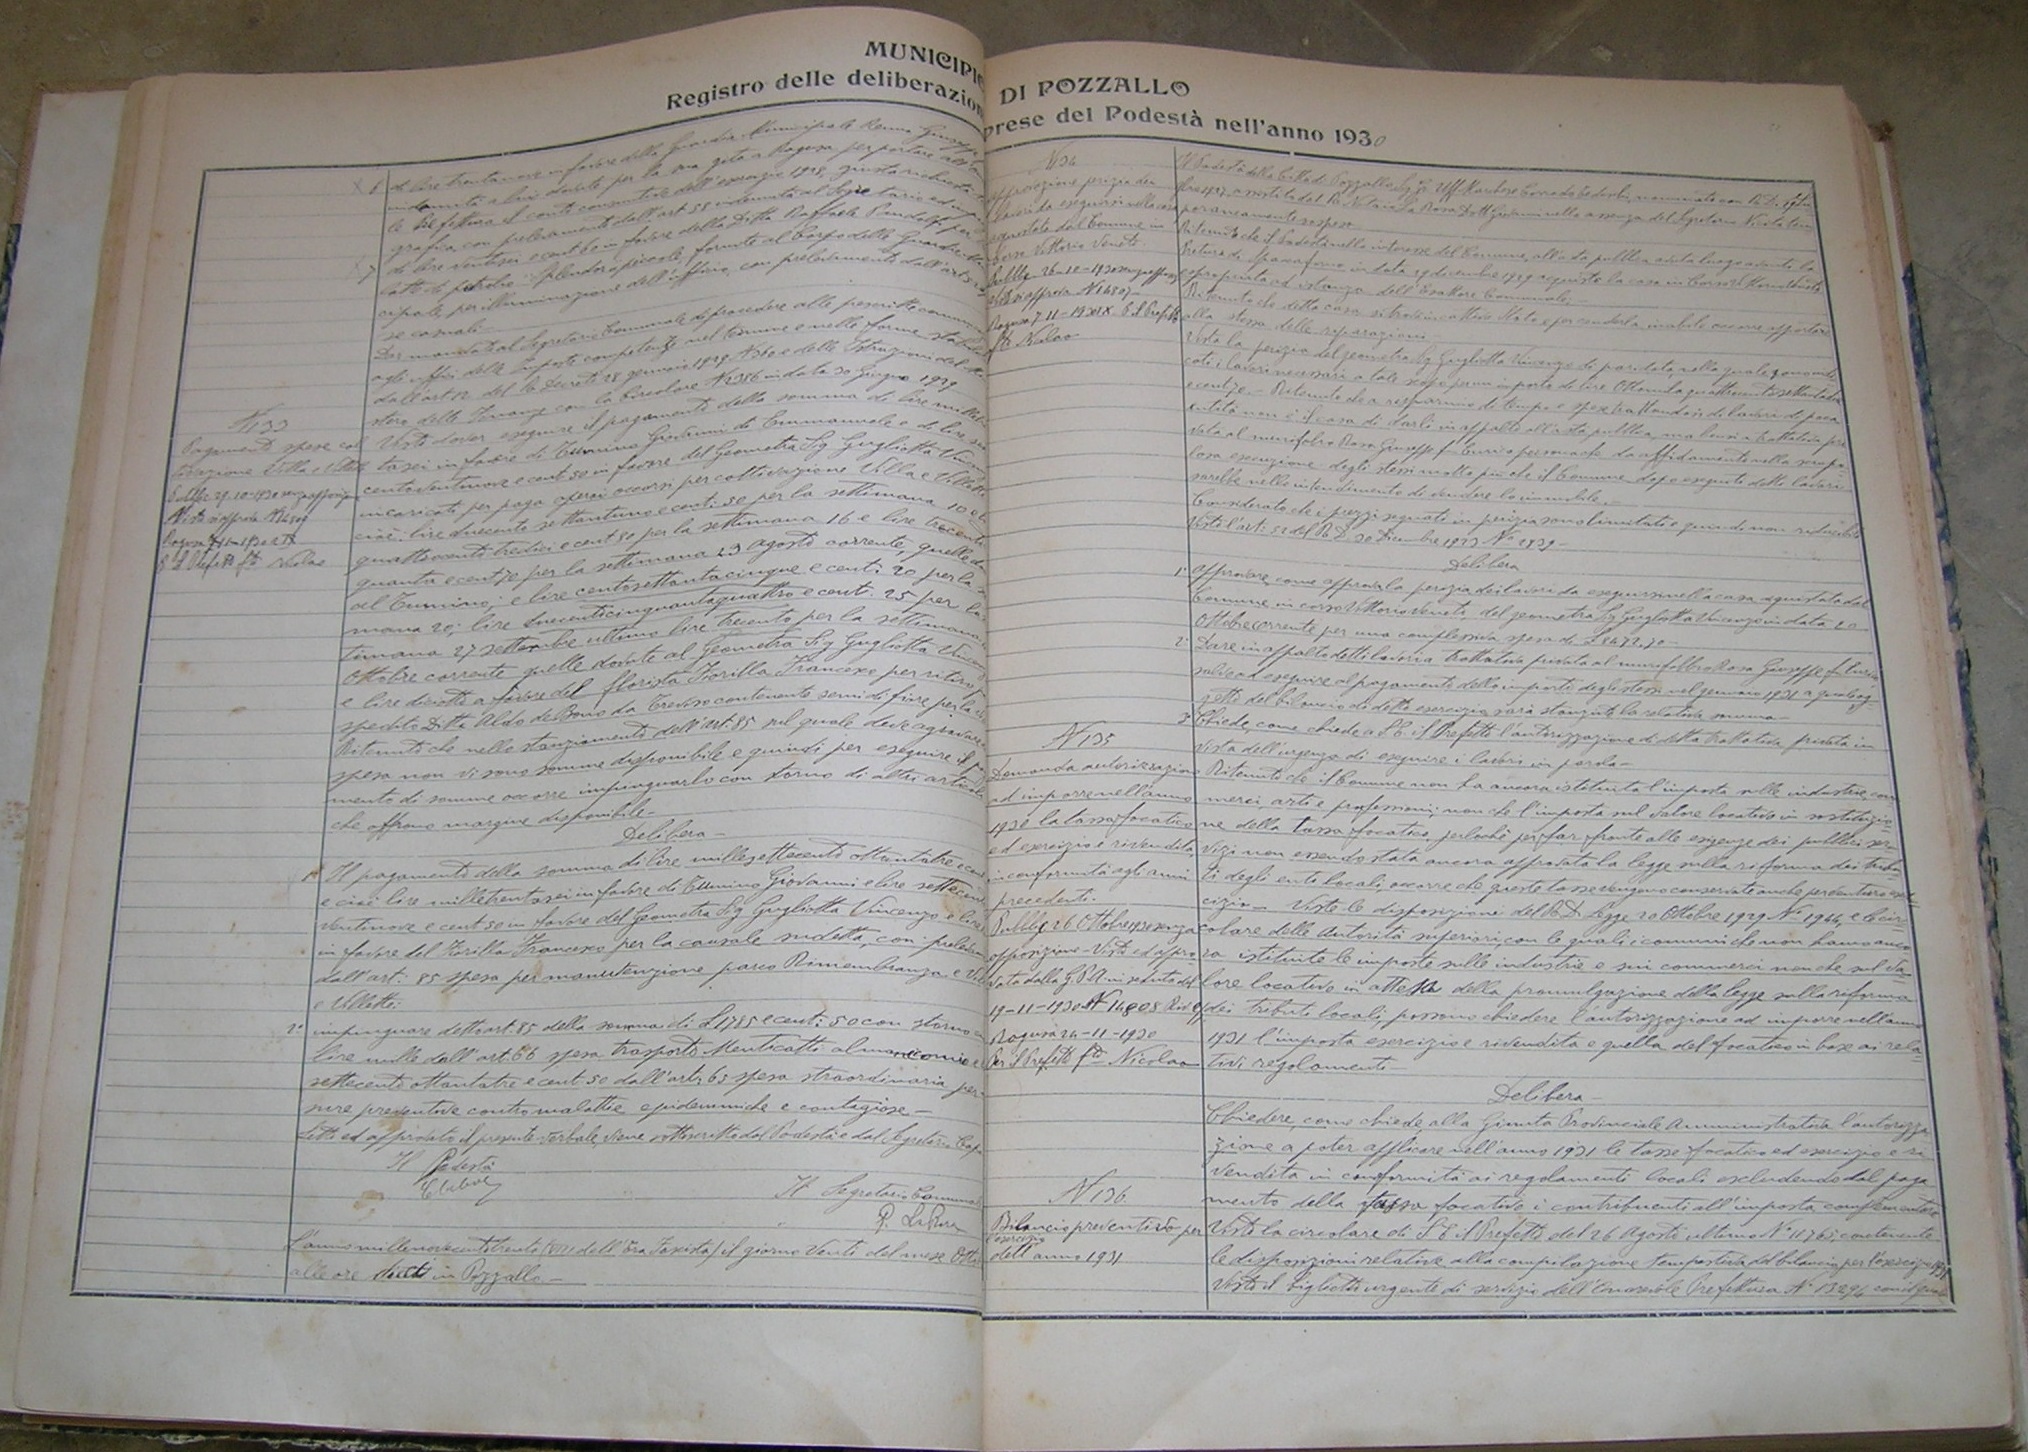 MUNICIPIO DI POZZALLO
Registro delle deliberazioni prese del Podestà nell'anno 1930
di lire trentanove in favore della Guardia Municipale
indennità a lui dovute per la sua gita a Ragusa per portare
le Prefettura il conto consuntivo dell'esercizio 1929
grafia, con prelevamento dall'art. 58 indennità al Segretario ed
di lire ventisei e cent 60 in favore della Ditta Raffaele
latte di petrolio Splendor e piccole, fornite al Corpo delle Guardie
cipale per illuminazione dell'ufficio, con prelevamento dall'art
se casuali
Dar mandato al Segretario Comunale di procedere alle prescritte
agli uffici delle Imposte competente nel termine e nelle forme
dall'art 12 del R. Decreto 28 gennaio 1929 N 360 e delle Istruzioni del
stero delle Finanze con la Circolare N 2386 in data 20 Giugno 1929
N 133
Pagamento spese col
tivazione Villa e Villette
Pubbl. 29-10-1930 senza opposizioni
Vista si approva N 14809
Ragusa 7-11-1930 IX
P. Il Prefetto fto Nicolao
Visto dover eseguire il pagamento della somma di lire mille
tasei in favore di Tumino Giovanni di Emmanuele e di lire
centoventinove e cent 50 in favore del Geometra Sig Gugliotta
incaricati per paga operai occorsi per coltivazione Villa e Villette
cioè: lire duecento settantuno e cent. 50 per la settimana 10
quattrocento tredici e cent 80 per la settimana 16 e lire trecento
quanta e cent 70 per la settimana 23 Agosto corrente, quelle
al Tumino; e lire centosettantacinque e cent: 20 per la
mana 20; lire duecentocinquantaquattro e cent. 25 per la
timana 27 settembre ultimo lire trecento per la settimana
Ottobre corrente quelle dovute al Geometra Sig Gugliotta
e lire diciotto a favore del florista Fiorilla Francesco per ritiro
spedito Ditta Aldo del Bono da Treviso contenente semi di fiore per la
Ritenuto che nello stanziamento dell'art. 85 sul quale deve agravare
spesa non vi sono somme disponibile e quindi per eseguire il
mento di somme occorre impinguarlo con storno di altri articoli
che offrono margine disponibile
Delibera
1° Il pagamento della somma di lire millesettecento ottantatre
e cioè lire milletrentasei in favore di Tumino Giovanni e lire settecento
ventinove e cent 50 in favore del Geometra Sig Gugliotta Vincenzo e lire
in favore del Fiorilla Francesco per la causale sudetta, con
dall'art: 85 spesa per manutenzione parco Rimembranza e
e Villette;
2° impinguare detto art. 85 della somma di £ 1785 e cent: 50 con storno
lire mille dall'art. 66 spesa trasporto Menticatti al manicomio e
settecento ottantatre e cent 50 dall'art. 65 spesa straordinaria per
sure preventive contro malattie epidemiche e contagiose
Letto ed approvato il presente verbale, viene sottoscritto dal Podestà e dal Segretario
Il Podestà
Il Segretario Comunale
P. La Rosa
L'anno millenovecentotrenta (VIII dell'Era Fascista) il giorno Venti del mese
alle ore dieci in Pozzallo
N 134
approvazione perizia dei
lavori da eseguirsi nella casa
acquistata dal Comune in
Corso Vittorio Veneto
Pubbl. 26-10-1930 senza opposiz
Vista si approva N 14807
Ragusa 7-11-1930 IX P. Il Prefetto
fto Nicolao
Il Podestà della Città di Pozzallo
assistito dal
poraneamente sospeso
Ritenuto che il Podestà nello interesse del Comune, all'asta pubblica
Pretura di Spaccaforno in data 19 dicembre 1929 acquistò la casa in Corso
espropriata ad istanza dell'Esattore Comunale;
Ritenuto che detta casa si trova in cattivo stato e per renderla inabile occorre apportare
alla stessa delle riparazioni
Vista la perizia del geometra Sig Gugliotta Vincenzo di pari data, nella quale sono indi
cati i lavori necessari a tale scopo per un importo di lire Ottomila quattrocento settantadue
e cent 70. Ritenuto che a risparmio di tempo e spese trattandosi di lavori di poca
entità non è il caso di darli in appalto all'asta pubblica, ma bensì a trattativa pri
vata al murifabro Rosa Giuseppe fu Curzio persona che da affidamento nella scrupo
losa esecuzione degli stessi molto più che il Comune dopo eseguiti detti lavori
sarebbe nello intendimento di vendere lo immobile.
Considerato che i prezzi segnati in perizia sono limitati e quindi non
Visto l'art. 52 del R. D. 30 Dicembre 1923 N° 2839
Delibera
1° approvare come approva la perizia dei lavori da eseguirsi nella casa acquistata dal
Comune in corso Vittorio Veneto, del geometra Sig Gugliotta Vincenzo in data 20
Ottobre corrente per una complessiva spesa di £ 8472,70
2° Dare in appalto detti lavori a trattativa privata al murifabbro Rosa Giuseppe fu Curzio
salvo ad eseguire al pagamento dello importo degli stessi nel gennaio 1931 a quale
getto del bilancio di detto esercizio sarà stanziata la relativa somma
3° Chiede, come chiede a S. E. il Prefetto l'autorizzazione di detta trattativa privata in
vista dell'urgenza di eseguire i lavori in parola
N 135
Domanda autorizzazione
ad imporre nell'anno
1931 la tassa focatico
ed esercizio e rivendita,
in conformità agli anni
precedenti.
Pubbl. 26 Ottobre senza
opposizione Vista ed appro
vata dalla G.P.A. in seduta del
19-11-1930 N 14808
Ragusa 24-11-1930
Per Il Prefetto fto Nicolao
Ritenuto che il Comune non ha ancora istituita l'imposta sulle industrie, com
merci, arti e professioni; non che l'imposta sul valore locativo in sostituzio
ne della tassa focatico, perlochè per far fronte alle esigenze dei pubblici ser
vizi non essendo stata ancora approvata la legge sulla riforma dei tribu
ti degli enti locali, occorre che queste tasse vengono conservate anche per venturo eser
cizio. Viste le disposizioni del R. D. Legge 20 Ottobre 1929 N° 1944, e le cir
colare delle Autorità superiori, con le quali i comuni che non hanno anco
ra istituite le imposte sulle industrie e sui commerci non che sul va
lore locativo in attesa della promulgazione della legge sulla riforma
dei tributi locali, possono chiedere l'autorizzazione ad imporre nell'anno
1931 l'imposta esercizio e rivendita e quella del focatico in base ai rela
tivi regolamenti
Delibera
Chiedere, come chiede, alla Giunta Provinciale Amministrativa l'autorizza
zione a poter applicare nell'anno 1931 le tasse focatico ed esercizio e ri
vendita in conformità ai regolamenti locali escludendo dal paga
mento della tassa focatico i contribuenti all'imposta complementare
N 136
Bilancio preventivo per
l'esercizio
dell'anno 1931
Vista la circolare di S. E. il Prefetto del 26 Agosto ultimo N° 10763 contenente
le disposizioni relative alla compilazione tempestiva del bilancio per l'esercizio 1931
Visto il biglietto urgente di servizio dell'Onorevole Prefettura N° 13294 con il quale